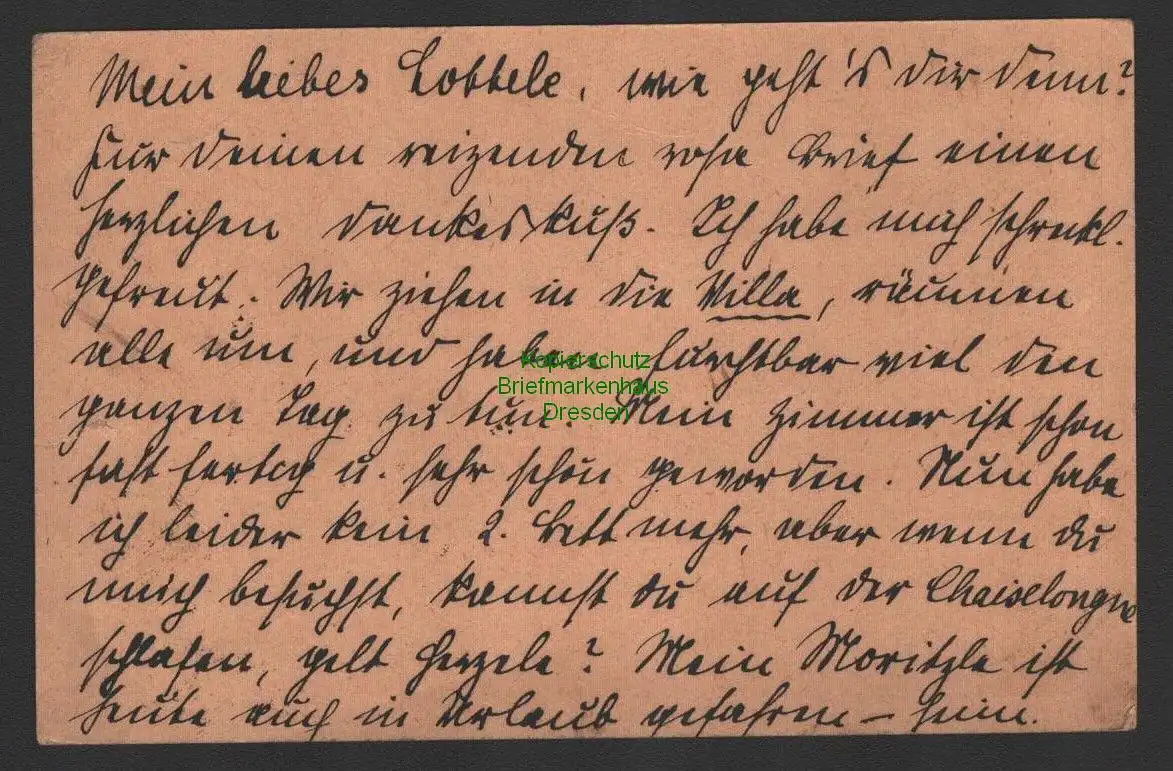 Mein liebes Lottele, wie geht's dir denn?
Für deinen reizenden rosa Brief einen
herzlichen Dankeskuß. Ich habe mich schreckl.
gefreut. Wir ziehen in die Villa, räumen
alle um, und haben furchtbar viel den
ganzen Tag zu tun. Mein Zimmer ist schon
fast fertig u. sehr schön geworden. Nun habe
ich leider kein 2. Bett mehr, aber wenn du
mich besuchst, kannst du auf der Chaiselongue
schlafen, gelt Herzele? Mein Moritzle ist
heute auch in Urlaub gefahren –
Kopierschutz
Briefmarkenhaus
Dresden